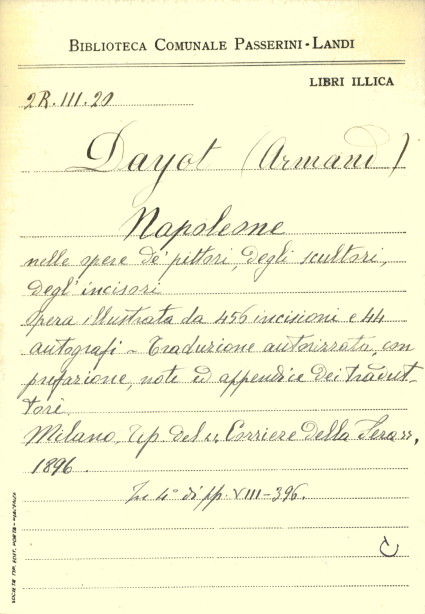 BIBLIOTECA COMUNALE PASSERINI-LANDI
LIBRI ILLICA
2R.III.20
Dayot (Armand)
Napoleone
nelle opere de' pittori, degli scultori,
degl'incisori
opera illustrata da 456 incisioni e 44
autografi - Traduzione autorizzata, con
prefazione, note ed appendice dei tradut-
tori.
Milano, Tip. del "Corriere della Sera",
1896.
In 4° di pp. VIII-396.